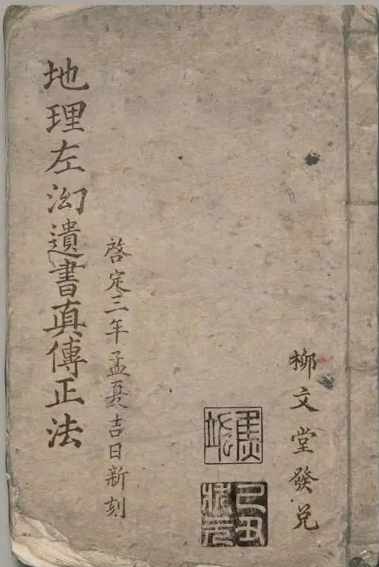 柳文堂發兌
啓定三年孟夏吉日新刻
地理左泑遺書真傳正法